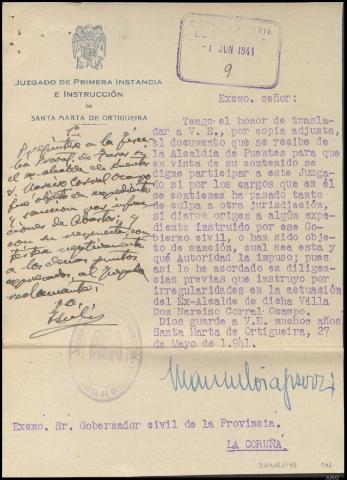 JUZGADO DE PRIMERA INSTANCIA
E INSTRUCCIÓN
DE
SANTA MARTA DE ORTIGUEIRA
1 JUN 1941
9
Excmo. señor:
Tengo el honor de trasla-
dar a V.E., por copia adjunta,
el documento que se recibe de
la Alcaldia de Puentes para que
en vista de su contenido se
digne participar a este Juzga-
do si por los cargos que en él
se contienen ha pasado tanto
de culpa a otra jurisdicción,
si dieron origen a algún expe-
diente instruido por ese Go-
bierno civil, o han sido obje-
to de sanción, cual sea esta y
qué Autoridad la impuso; pues
asi lo he acordado en diligen-
cias previas que instruyo por
irregularidades en la actuación
del Ex-Alcalde de dicha Villa
Don Narciso Corral Ocampo.
Dios guarde a V.E. muchos años
Santa Marta de Ortigueira, 27
de Mayo de 1.941.
el ex alcalde de
Narciso Corral Ocampo
fue objeto de expediente
y sanciones por infrac-
ciones de Abastos, y
con su respuesta, con-
testar negativamente
a los demás puntos
al Juzgado
reclamante.
Excmo. Sr. Gobernador civil de la Provincia.
LA CORUÑA.